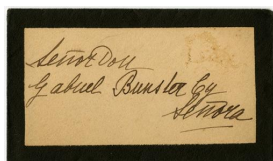 Señor Don
Gabriel Bunster Cy
Señora